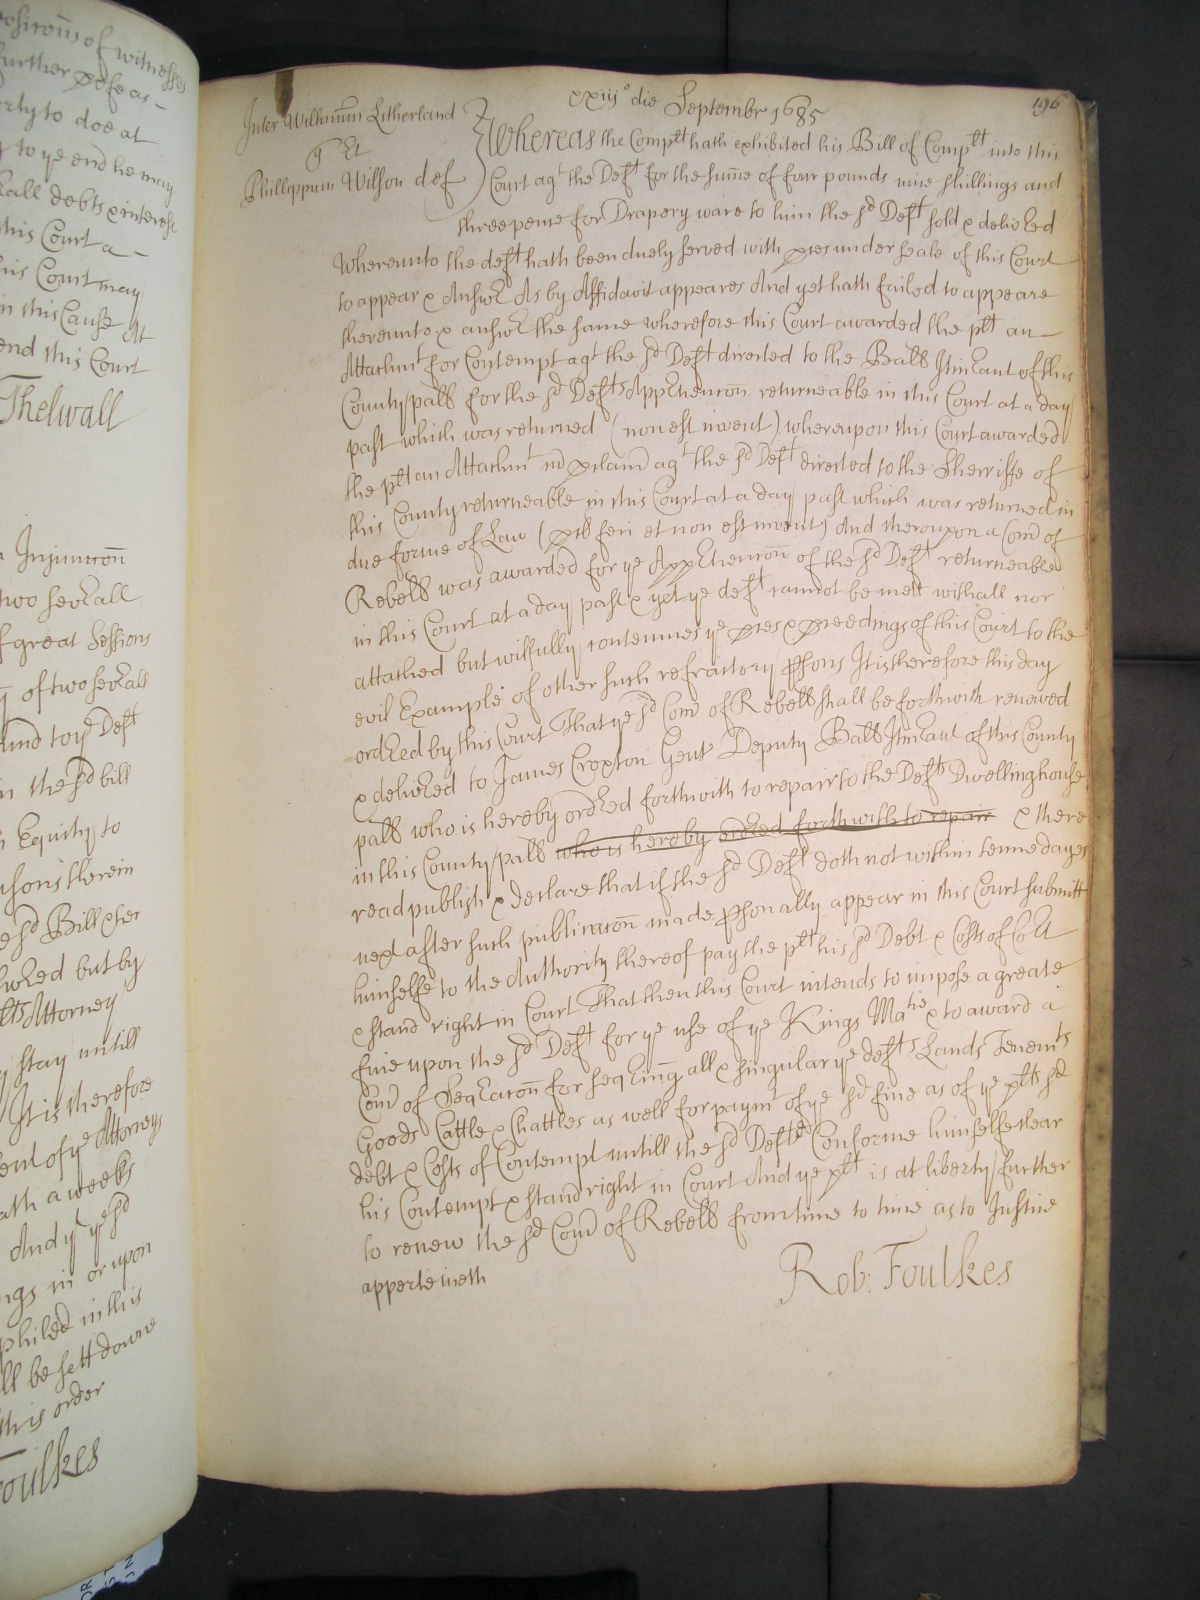 ositions of witnesses
further
erty to doe at
to ye end he may
all debts & interest
this Court a
his Court may
in this Cause At
end this Court
Thelwall
Injunccon
two sevrall
f great Sessions
of two sevrall
and to ye Deft
in the sd bill
Equity to
sons therein
e sd Bill & her
swered but by
lts Attorney
stay untill
It is therefore
ent of ye Attorneys
ath a weeks
And yt ye sd
ngs in or upon
philed in this
ll be sett downe
this order
Foulkes
196
xxiijo die Septembr 1685
Inter Willmum Litherland
qr Et
Phillippum Wilson def
Whereas the Complt hath exhibited his Bill of Complt into this
Court agt the Deft for the sume of four pounds nine shillings and
three pence for Drapery ware to him the sd Deft sold & delivred
Whereunto the deft hath been duely served with pces under seale of this Court
to appear & Answer As by Affidavit appeares And yet hath failed to appeare
thereunto & answer the same wherefore this Court awarded the plt an
Attachmt for Contempt agt the sd Deft directed to the Balb Itinerant of this
County palb for the sd Defts Apprehencon returneable in this Court at a day
past which was returned (non est invent) whereupon this Court awarded
the plt an Attachmt wth pclam agt the sd Deft directed to the Sherriffe of
this County returneable in this Court at a day past which was returned in
due forme of Law (plb feci et non est invent) And thereupon a Com of
Rebell was awarded for ye Apprehencon of the sd Deft returneable
in this Court at a day past & yet ye deft cannot be mett withall nor
attached but wilfully contemnes ye pces & pceedings of this Court to the
evil Example of other such refractory psons It is therefore this day
ordred by this Court That ye sd Com of Rebell shall be forthwith renewed
& delivred to James Croxton Gent Deputy Balb Itinrant of this County
palb who is hereby ordred forthwith to repair to the Defts Dwelling house
in this County palb who is hereby ordred forthwith to repair & there
read publish & declare that if the sd Deft doth not within tenne dayes
next after such publicacon made psonally appear in this Court submitt
himselfe to the Authority thereof pay the plt his sd Debt & Costs of Cort
& stand right in Court That then this Court intends to impose a greate
fine upon the sd Deft for ye use of ye Kings Matie & to award a
Com of Seqracon for seqring all & singular ye defts Lands Tenemts
Goods Cattle & Chattles as well for paymt of ye sd fine as of ye plts sd
debt & Costs of Contempt untill the sd Deft Conforme himselfe clear
his Contempt & stand right in Court And ye plt is at liberty further
to renew the sd Com of Rebell from time to time as to Justice
apperteineth
Rob: Foulkes